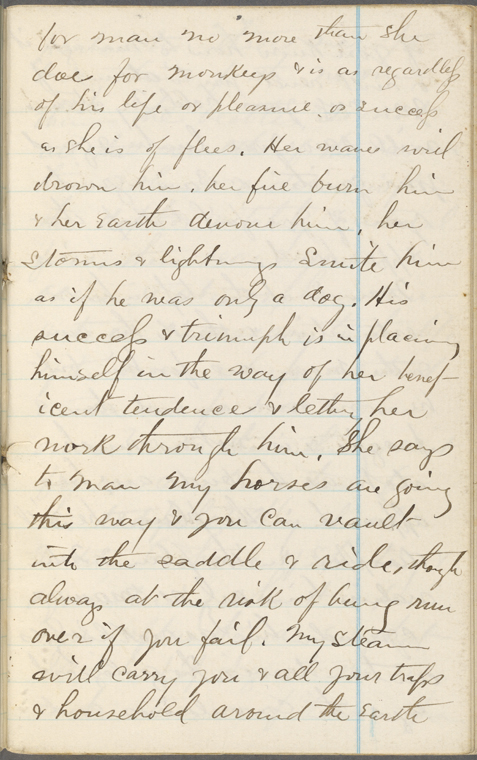 for man no more than she
doe for monkeys & is as regardless
of his life or pleasure, or success
as she is of flees. Her waves will
drown him, her fire burn him
& her Earth devour him, her
storms & lightnings Smite him
as if he was only a dog. His
success & triumph is in placing
himself in the way of her benef-
icent tendence & letting her
work through him. She says
to man my horses are going
this way & you can vault
into the saddle & ride, though
always at the risk of being run
over if you fail. My Steam
will carry you & all your traps
& household around the Earth